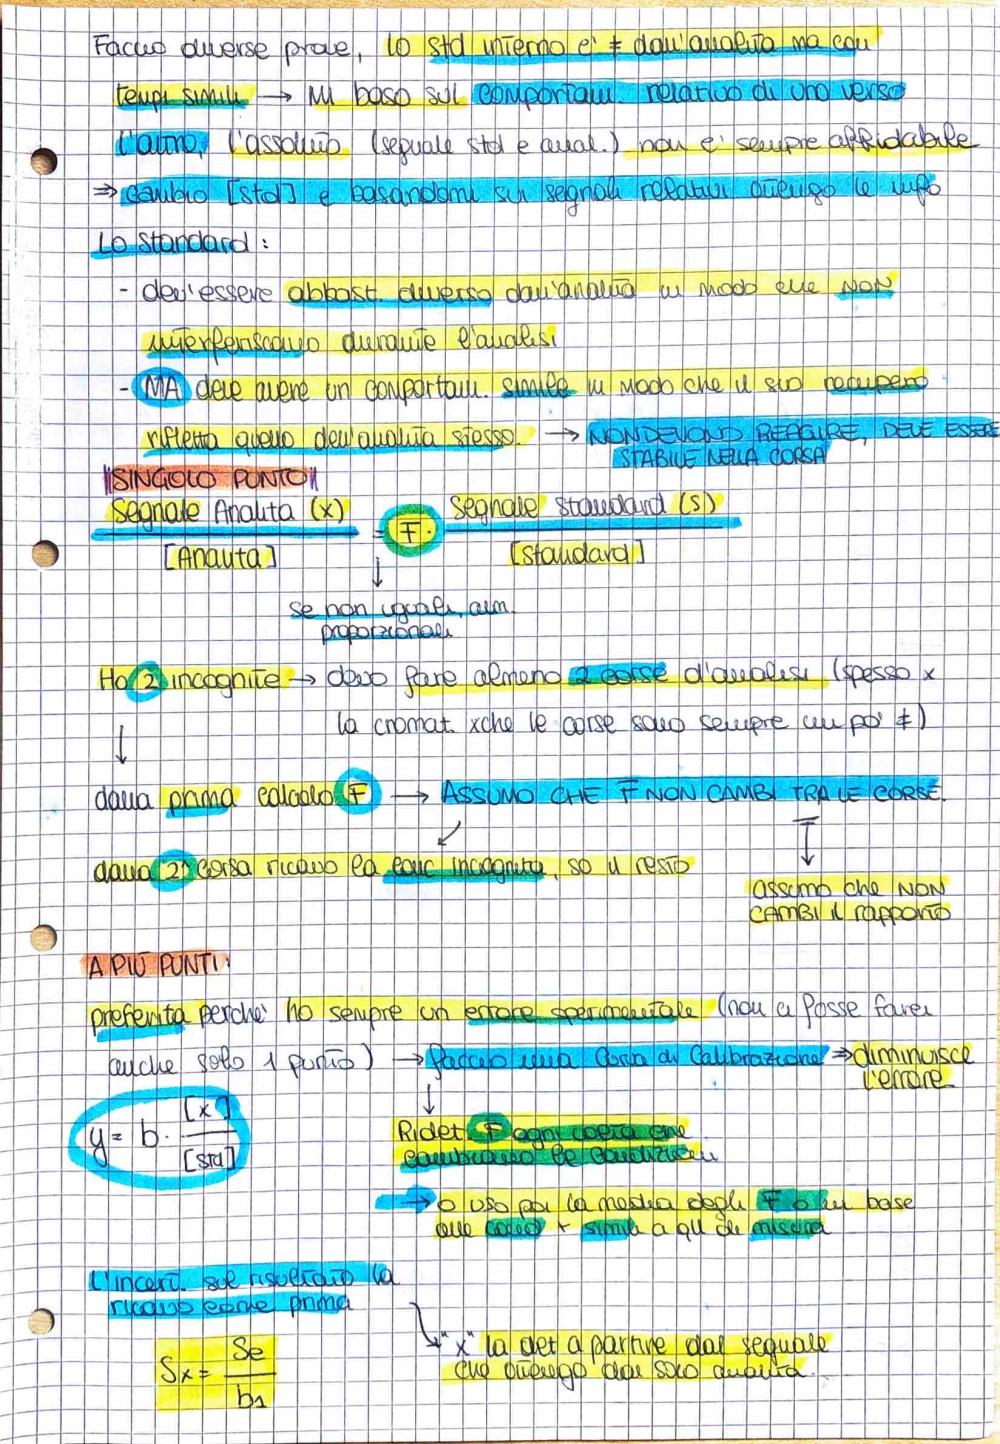 Faccio diverse prove, lo std interno e' ≠ dall'analita ma con
tempi simili → mi baso sul comportam. relativo di uno verso
l'altro, l'assoluto (segnale std e anal.) non e' sempre affidabile
⇒ cambio [std] e basandomi sui segnali relativi ottengo le info
Lo standard:
- dev'essere abbast. diverso dall'analita in modo che NON
interferiscano durante l'analisi
- MA deve avere un comportam. simile in modo che il suo recupero
rifletta quello dell'analita stesso. → NON DEVONO REAGIRE, DEVE ESSERE
STABILE NELLA CORSA
SINGOLO PUNTO
Segnale Analita (x) = F · Segnale Standard (s)
[Analita] [Standard]
↓
se non uguali, alm.
proporzionali
Ho 2 incognite → devo fare almeno 2 corse d'analisi (spesso x
la cromat. xche le corse sono sempre un po' ≠)
↓
dalla prima calcolo F → ASSUMO CHE F NON CAMBI TRA LE CORSE.
dalla 2ª corsa ricavo la conc incognita, so il resto
assumo che NON
CAMBI il rapporto
A PIU PUNTI:
preferita perche' ho sempre un errore sperimentale (non ci fosse farei
anche solo 1 punto) → faccio una Corsa di Calibrazione ⇒ diminuisce
l'errore
↓
y = b · [x] / [std]
Ridet F ogni volta che
cambiano le condizioni
→ o uso poi la media degli F o in base
alle cond + simili a qll di misura
L'incert. sul risultato la
ricavo come prima
"x" la det a partire dal segnale
che ottengo dal solo analita.
Sx = Se / b1